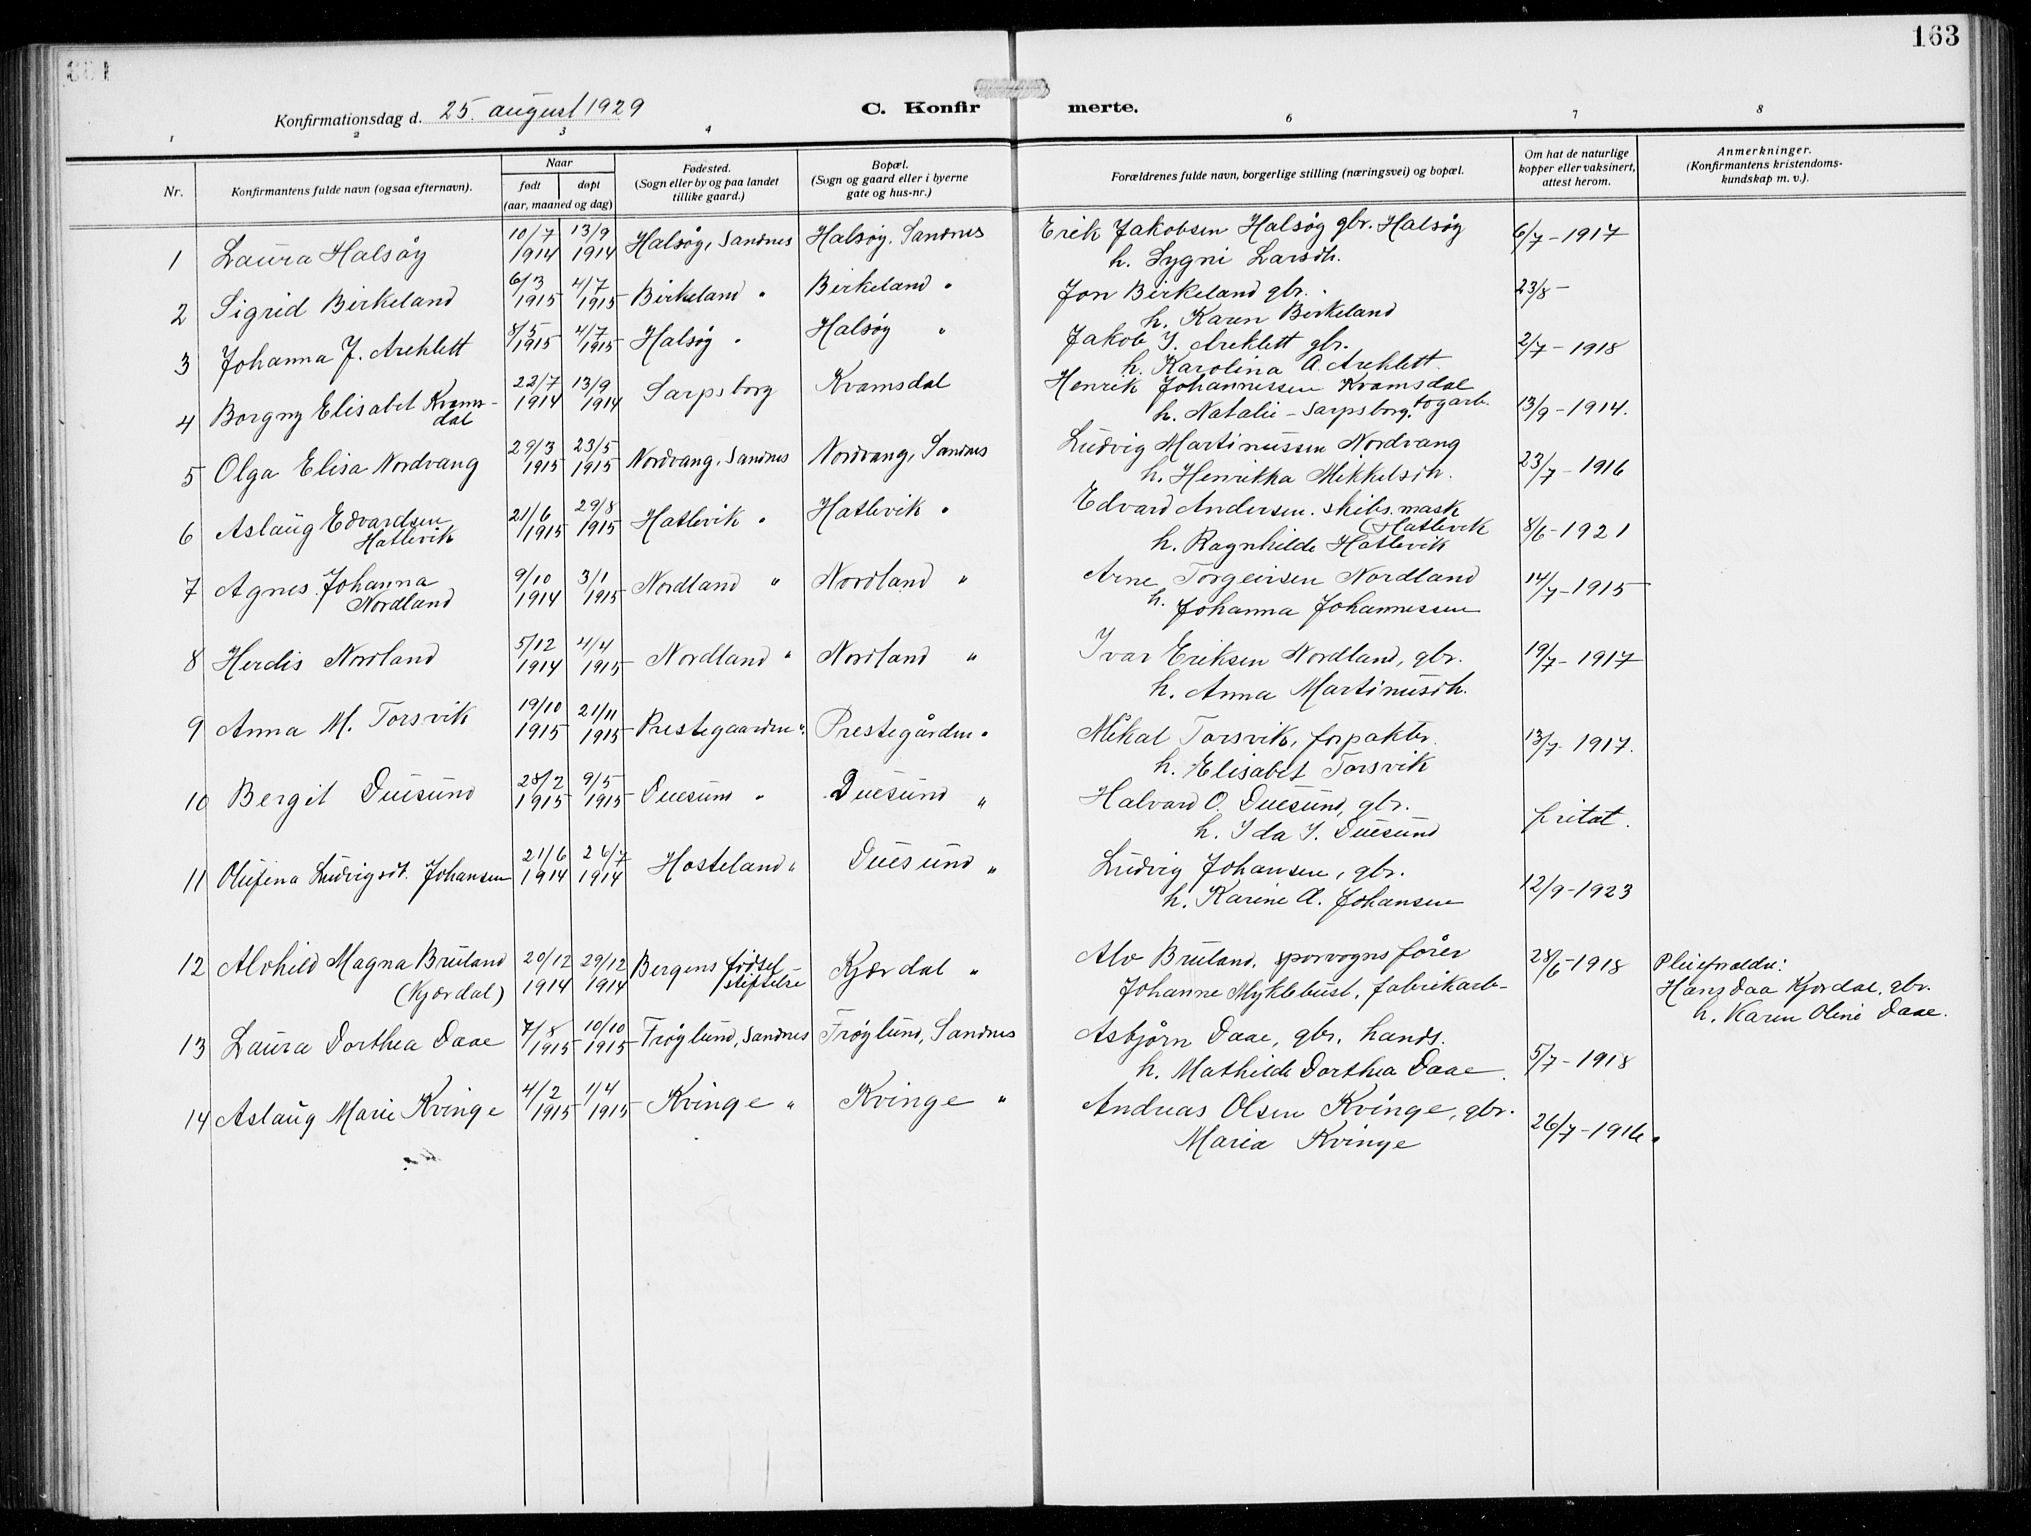 163
Konfirmationsdag d. 25. august 1929
C. Konfirmerte.
1 2 3 4 6 7 8
Nr.
Konfirmantens fulde navn (ogsaa efternavn).
Naar
født døpt
(aar, maaned og dag)
Fødested.
(Sogn eller by og paa landet
tillike gaard.)
Bopæl.
(Sogn og gaard eller i byerne
gate og hus-nr.)
Forældrenes fulde navn, borgerlige stilling (næringsvei) og bopæl.
Om hat de naturlige
kopper eller vaksinert,
attest herom.
Anmerkninger.
(Konfirmantens kristendoms-
kundskap m. v.).
1 Laura Halsøy 10/7 1914 13/9 1914 Halsøy, Sandnes Halsøy, Sandnes Erik Jakobsen Halsøy gbr. Halsøy 6/7 - 1917
h. Sygni Larsdtr.
2 Sigrid Birkeland 6/3 1915 4/7 1915 Birkeland " Birkeland " Jon Birkeland gbr. 23/8 -
h. Karen Birkeland
3 Johanna J. Areklett 8/5 1915 4/7 1915 Halsøy " Halsøy " Jakob I. Areklett gbr. 2/7 - 1918
h. Karolina A. Areklett.
4 Borgny Elisabet Kvams-
dal 22/7 1914 13/9 1914 Sarpsborg Kvamsdal Henrik Johannessen Kvamsdal 13/9 - 1914.
h. Natalie - Sarpsborg. togarb.
5 Olga Elisa Nordvang 29/3 1915 23/5 1915 Nordvang, Sandnes Nordvang, Sandnes Ludvig Martinussen Nordvang 23/7 - 1916
h. Henrikka Mikkelsdtr.
6 Aslaug Edvardsen
Hatlevik 21/6 1915 29/8 1915 Hatlevik " Hatlevik " Edvard Andersen. skibs. mask
Hatlevik 8/6 - 1921
h. Ragnhilde Hatlevik
7 Agnes Johanna
Nordland 9/10 1914 3/1 1915 Nordland " Nordland " Arne Torgeirsen Nordland 14/7 - 1915
h. Johanna Johannessen
8 Herdis Nordland 5/12 1914 4/4 1915 Nordland " Nordland " Ivar Eriksen Nordland, gbr. 19/7 - 1917
h. Anna Martinusdtr.
9 Anna M. Torsvik 19/10 1915 21/11 1915 Prestegaarden " Prestegården " Mikal Torsvik, forpakter. 13/7 - 1917.
h. Elisabet Torsvik
10 Bergit Duesund 28/2 1915 9/5 1915 Duesund " Duesund " Halvard O. Duesund, gbr. fritat.
h. Ida I. Duesund
11 Olufina Ludvigsdt. Johansen 21/6 1914 26/7 1914 Hosteland " Duesund " Ludvig Johansen, gbr. 12/9 - 1923
h. Karine A. Johansen
12 Alvhild Magna Bruland
(Kjærdal) 20/12 1914 29/12 1914 Bergens fødsel
stiftelse Kjærdal " Alv Bruland, sporvognsfører 28/6 - 1918 Pleieforældre:
Johanne Myklebust, fabrikarb- Hans Daa Kjærdal, gbr.
h. Karen Oline Daae.
13 Laura Dorthea Daae 7/8 1915 10/10 1915 Frøylund, Sandnes Frøylund, Sandnes Asbjørn Daae, gbr. hands. 5/7 - 1918
h. Mathilde Dorthea Daae.
14 Aslaug Marie Kvinge 4/2 1915 1/4 1915 Kvinge " Kvinge " Andreas Olsen Kvinge, gbr. 26/7 - 1916.
Maria Kvinge